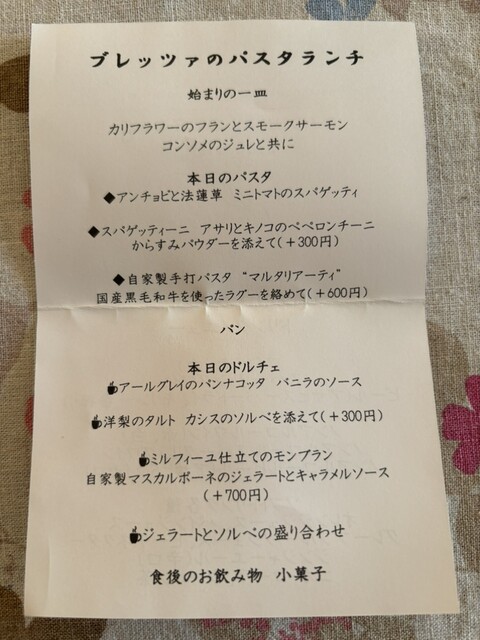 ブレッツァのパスタランチ
始まりの一皿
カリフラワーのフランとスモークサーモン
コンソメのジュレと共に
本日のパスタ
◆アンチョビと法蓮草 ミニトマトのスパゲッティ
◆スパゲッティーニ アサリとキノコのペペロンチーニ
からすみパウダーを添えて(+300円)
◆自家製手打パスタ “マルタリアーティ”
国産黒毛和牛を使ったラグーを絡めて(+600円)
パン
本日のドルチェ
☕アールグレイのパンナコッタ バニラのソース
☕洋梨のタルト カシスのソルベを添えて(+300円)
☕ミルフィーユ仕立てのモンブラン
自家製マスカルポーネのジェラートとキャラメルソース
(+700円)
☕ジェラートとソルベの盛り合わせ
食後のお飲み物 小菓子